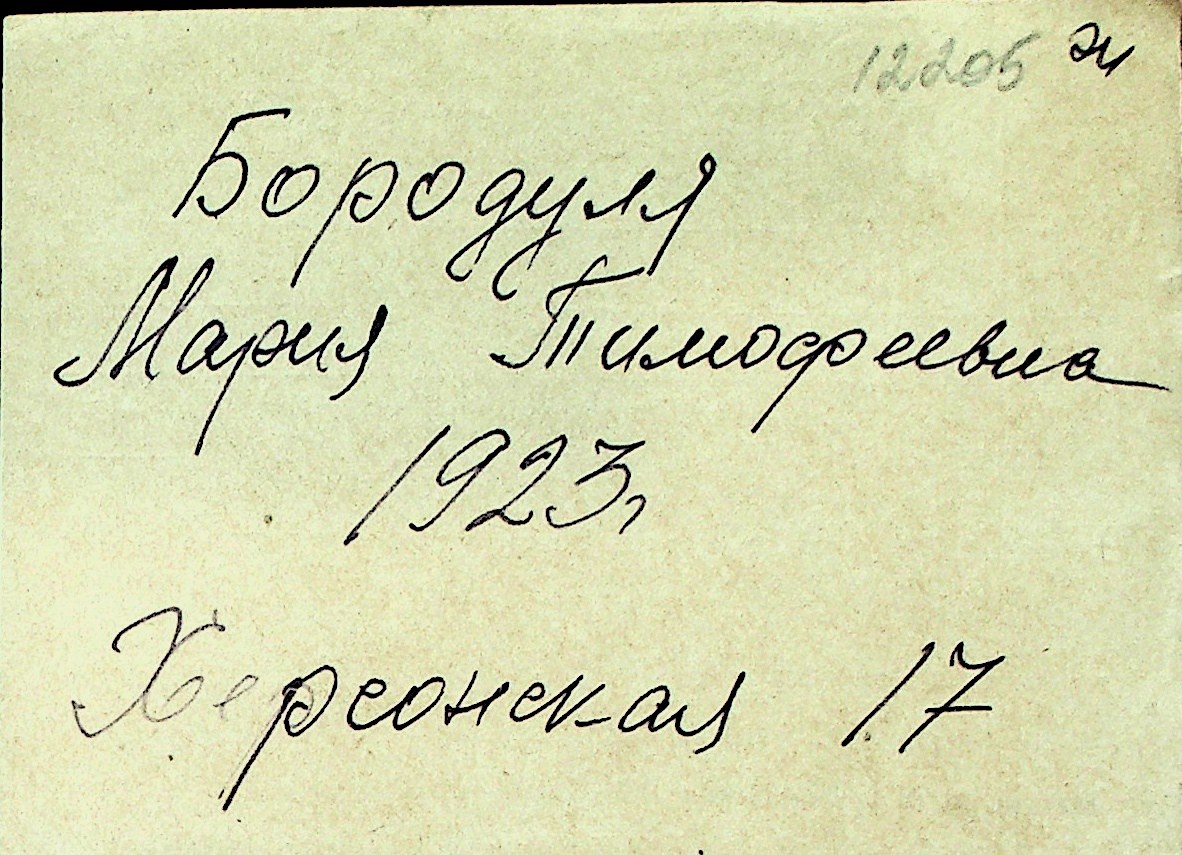 12205 эи
Бородуля
Мария Тимофеевна
1923г
Херсонская 17